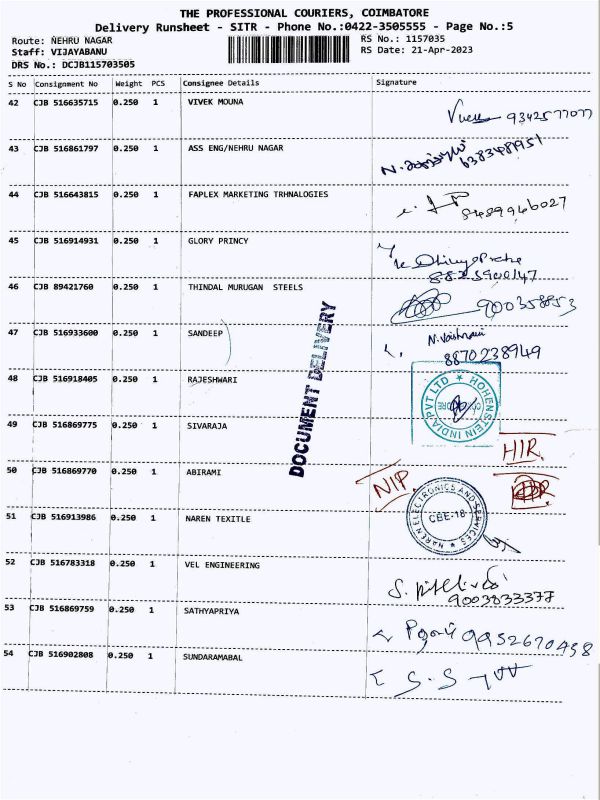 THE PROFESSIONAL COURIERS, COIMBATORE
Delivery Runsheet - SITR - Phone No.:0422-3505555 - Page No.:5
Route: NEHRU NAGAR
Staff: VIJAYABANU
DRS No.: DCJB115703505
RS No.: 1157035
RS Date: 21-Apr-2023
S No Consignment No Weight PCS Consignee Details Signature
42 CJB 516635715 0.250 1 VIVEK MOUNA 9342577077
43 CJB 516861797 0.250 1 ASS ENG/NEHRU NAGAR 6383481951
44 CJB 516643815 0.250 1 FAPLEX MARKETING TRHNALOGIES 8489946027
45 CJB 516914931 0.250 1 GLORY PRINCY
46 CJB 89421760 0.250 1 THINDAL MURUGAN STEELS 900358853
47 CJB 516933600 0.250 1 SANDEEP N. Vaishnavi
8870238949
48 CJB 516918405 0.250 1 RAJESHWARI
HOHENSTEIN INDIA PVT LTD
49 CJB 516869775 0.250 1 SIVARAJA HIR
50 CJB 516869770 0.250 1 ABIRAMI NIP.
51 CJB 516913986 0.250 1 NAREN TEXITLE
NAREN ELECTRONICS AND SERVICES
CBE-18
52 CJB 516783318 0.250 1 VEL ENGINEERING
9003833377
53 CJB 516869759 0.250 1 SATHYAPRIYA 9952670458
54 CJB 516902808 0.250 1 SUNDARAMABAL S.S
DOCUMENT DELIVERY